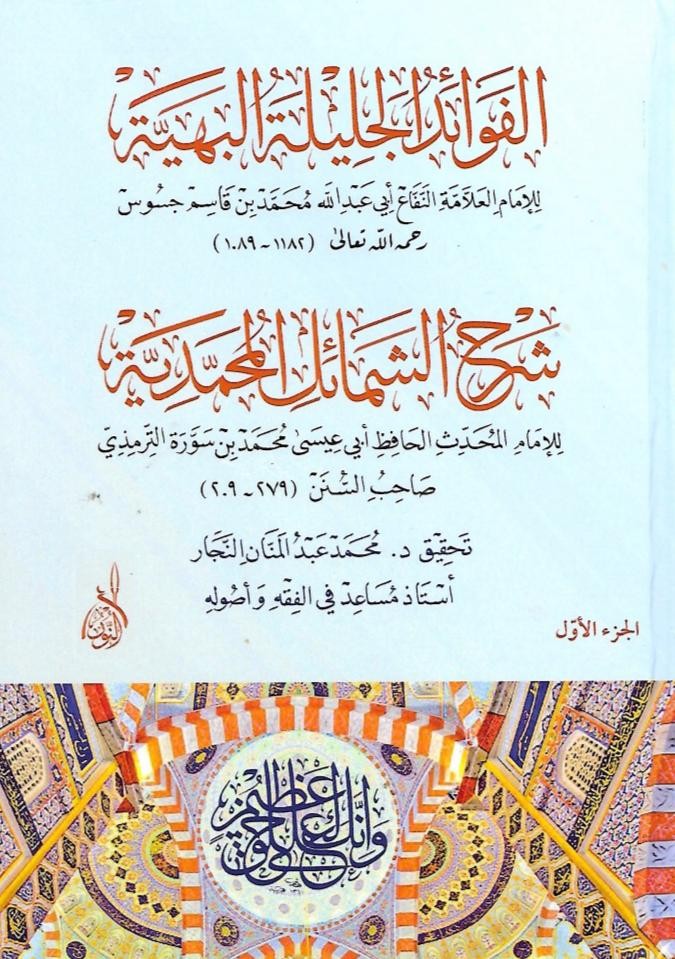 الفَوَائدُ الجَلِيلَة البَهيَّة
للإمَام العَلَّامَة النَّفَّاع أبي عَبْد الله مُحَمَّد بْن قَاسِم جسُوس
رحمه الله تعالى (١١٨٢ - ١٠٨٩)
شَرْحُ الشَّمَائل المُحَمَّديَّة
للإمَام المُحَدِّث الحَافِظ أبي عِيسَى مُحَمَّد بْن سَوْرَة الترمذيّ
صَاحِبُ السُّنَن (٢٧٩ - ٢٠٩)
تَحقِيق د. مُحَمَّد عَبْدُ المَنَّان النَّجَّار
أسْتَاذ مُسَاعِد في الفِقْه وَأصُولِهِ
الجزء الأوّل
النور
وَإِنَّكَ لَعَلَى خُلُقٍ عَظِيمٍ